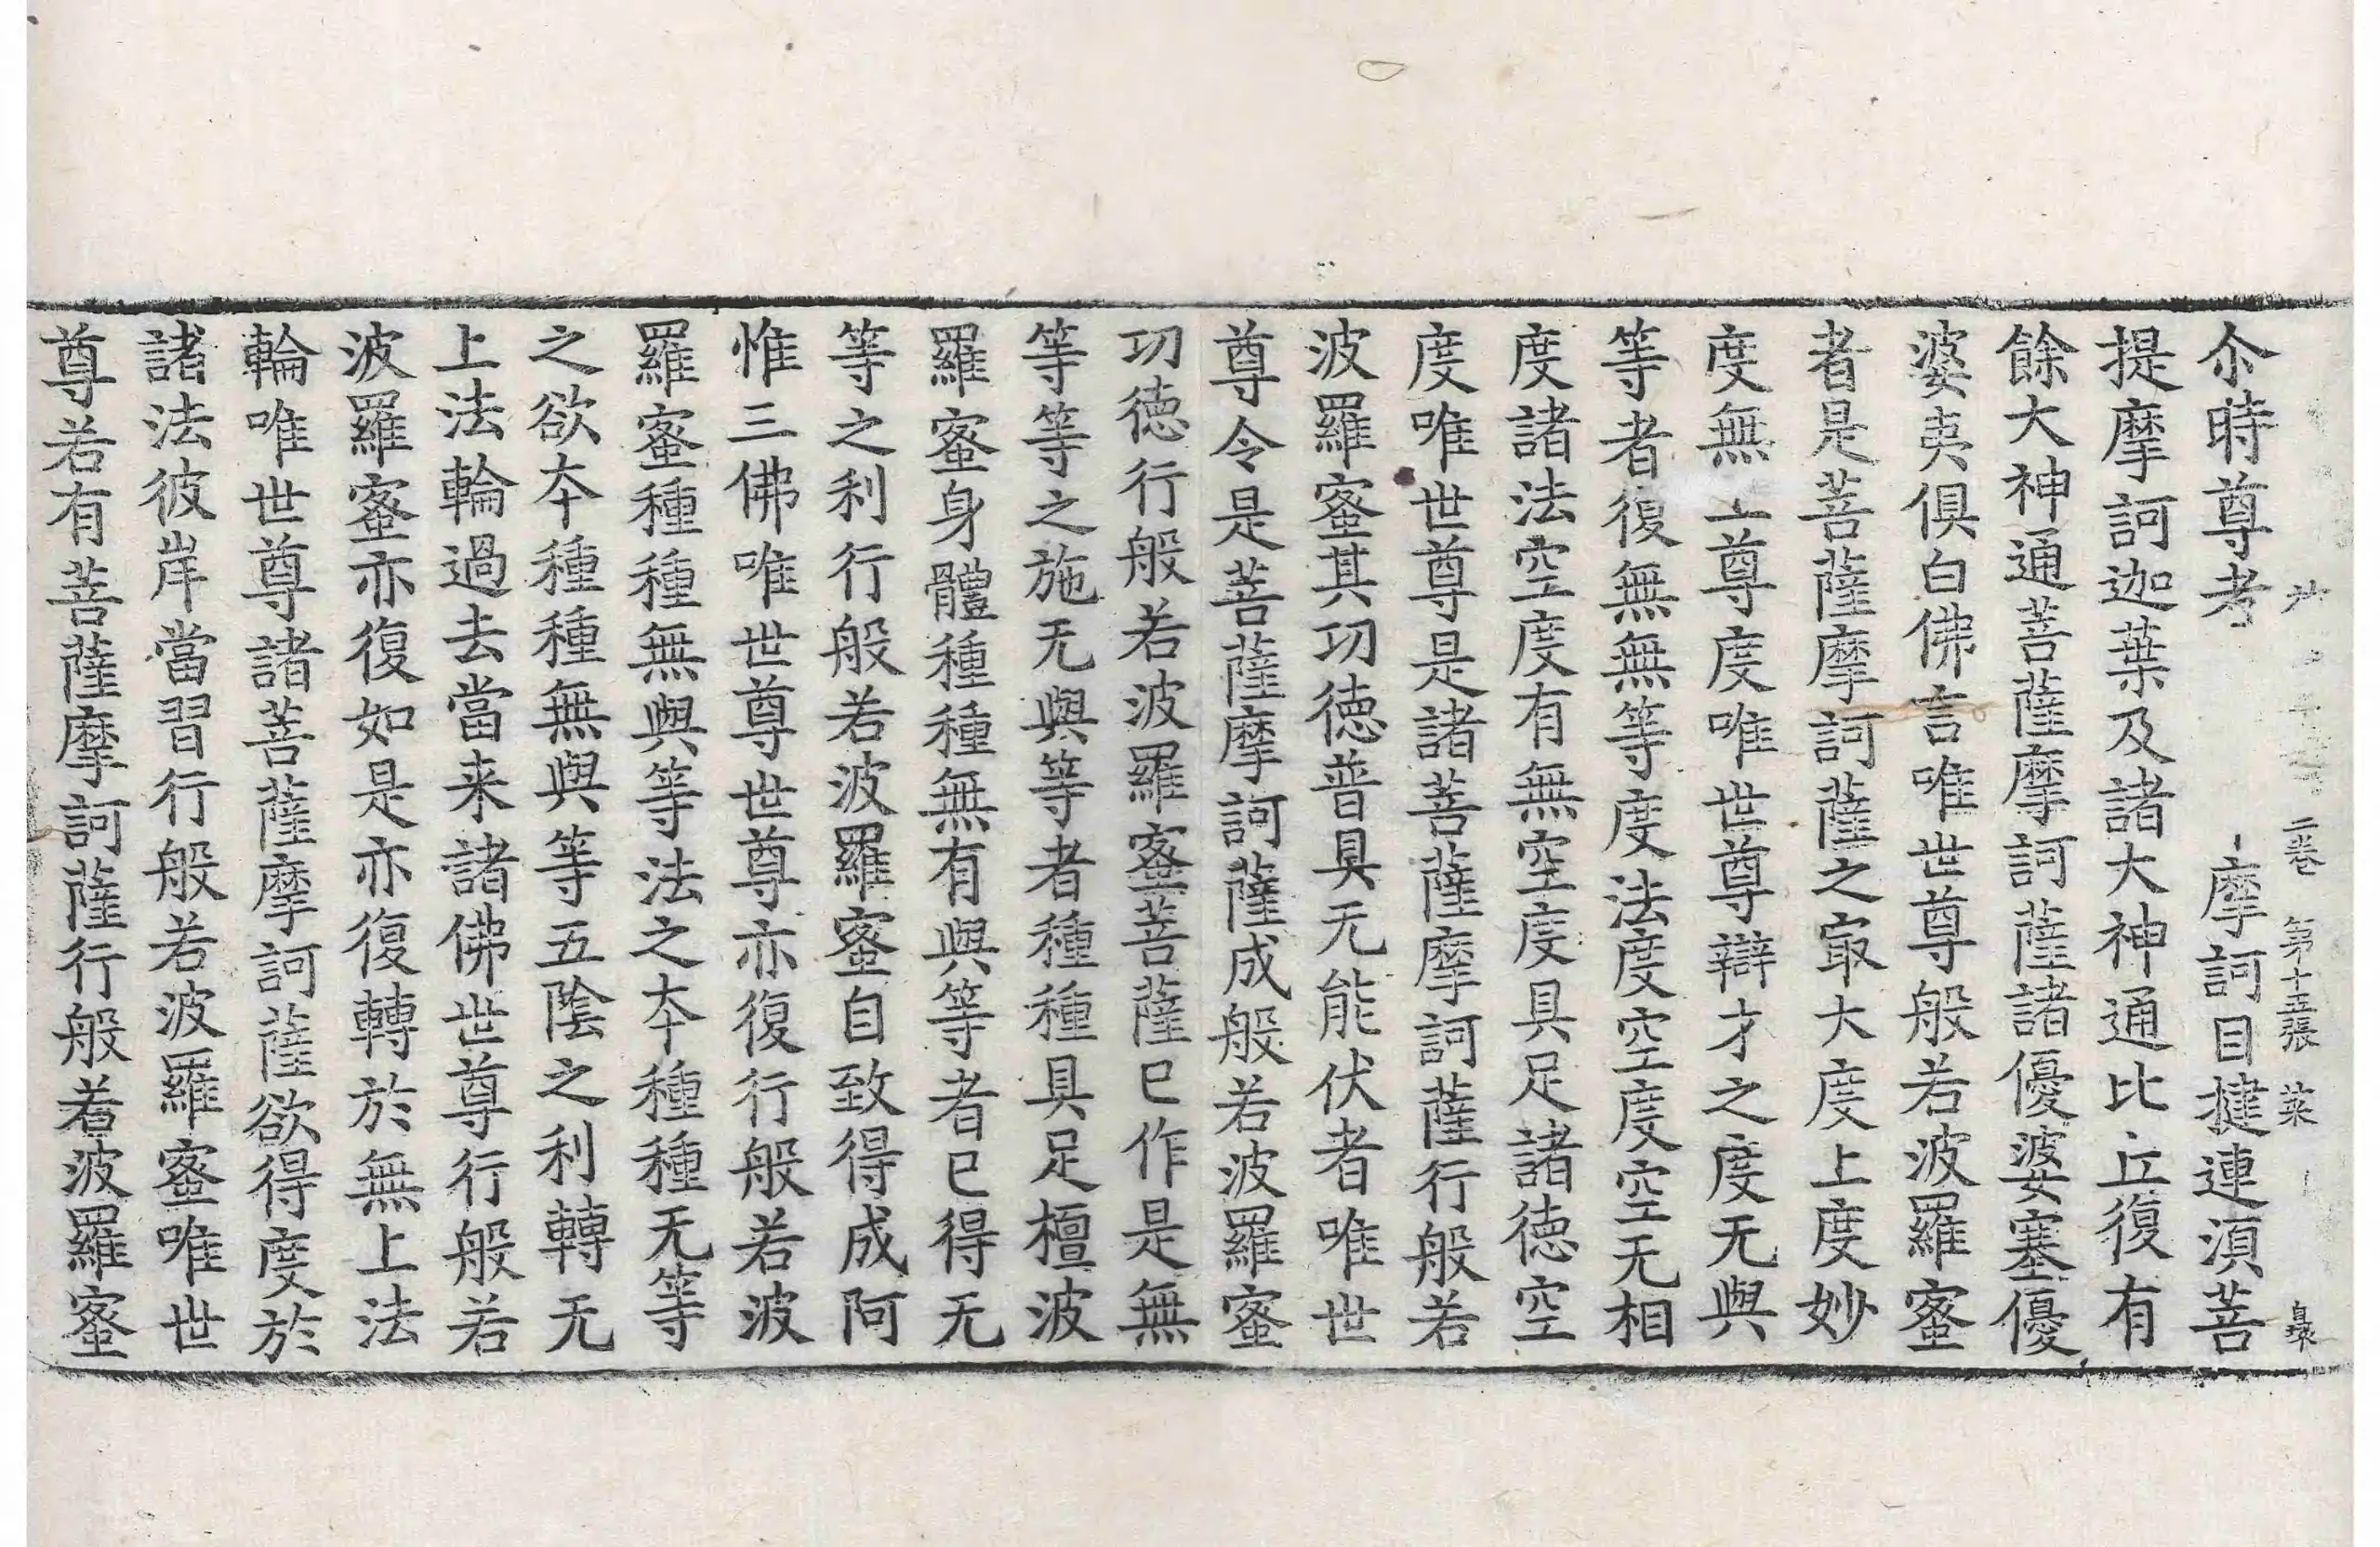 二卷 第十五張 菜
尒時尊者 摩訶目揵連湏菩
提摩訶迦葉及諸大神通比丘復有
餘大神通菩薩摩訶薩諸優婆塞優
婆夷俱白佛言唯世尊般若波羅蜜
者是菩薩摩訶薩之㝡大度上度妙
度無 尊度唯世尊辯才之度无與
等者復無無等度法度空度空无相
度諸法空度有無空度具足諸德空
度唯世尊是諸菩薩摩訶薩行般若
波羅蜜其功德普具无能伏者唯世
尊令是菩薩摩訶薩成般若波羅蜜
功德行般若波羅蜜菩薩已作是無
等等之施无與等者種種具足檀波
羅蜜身體種種無有與等者已得无
等之利行般若波羅蜜自致得成阿
惟三佛唯世尊世尊亦復行般若波
羅蜜種種無與等法之夲種種无等
之欲夲種種無與等五陰之利轉无
上法輪過去當来諸佛世尊行般若
波羅蜜亦復如是亦復轉於無上法
輪唯世尊諸菩薩摩訶薩欲得度於
諸法彼岸當習行般若波羅蜜唯世
尊若有菩薩摩訶薩行般若波羅蜜